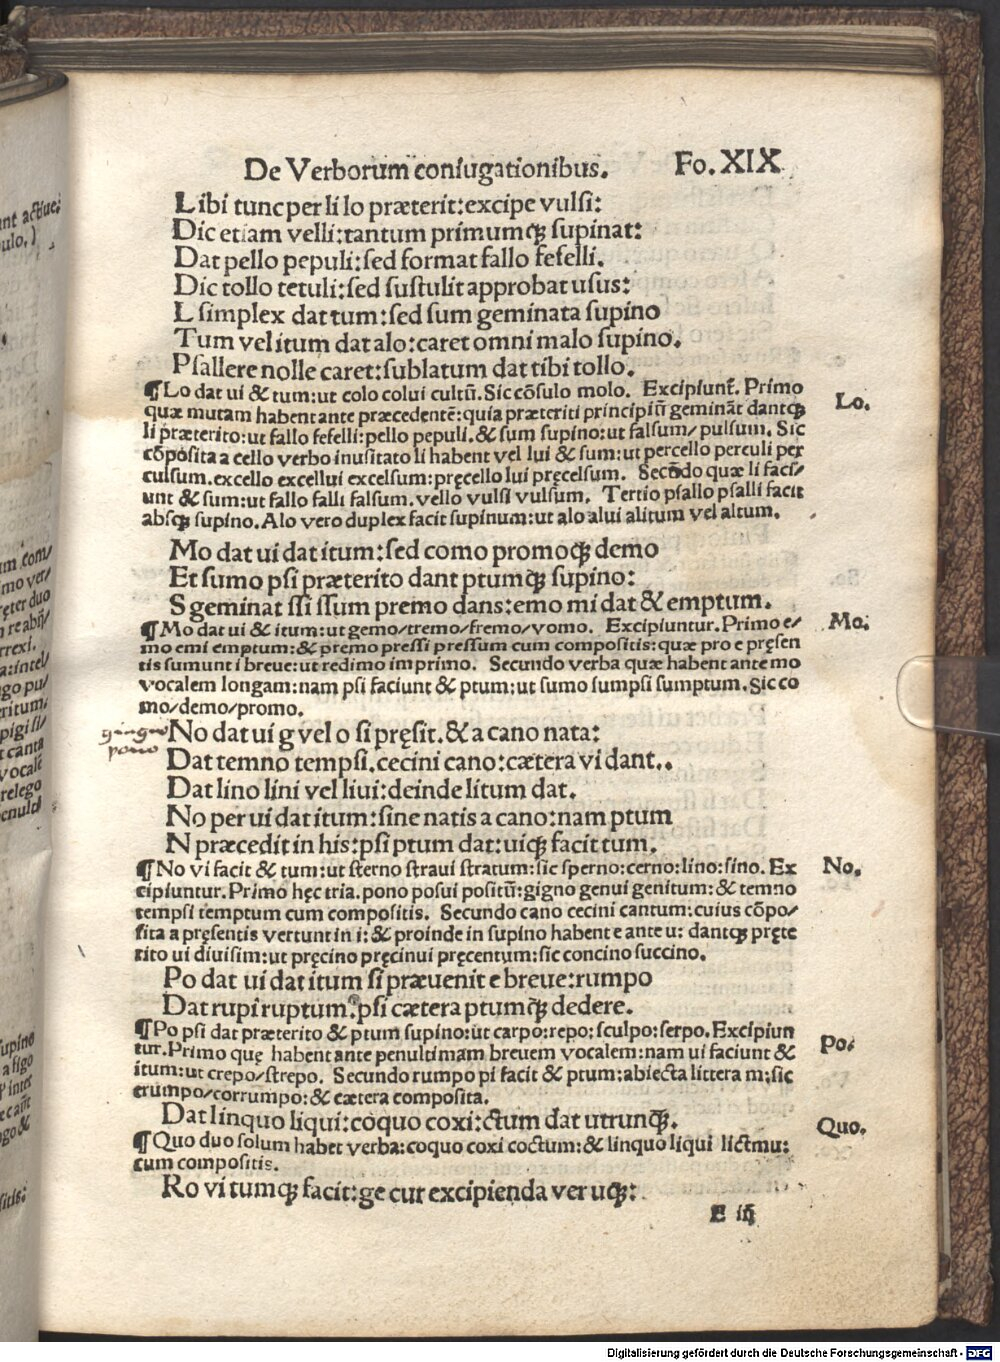 De Verborum coniugationibus. Fo. XIX
Libi tunc per li lo præterit: excipe vulsi:
Dic etiam velli: tantum primumqꝫ supinat:
Dat pello pepuli: sed format fallo fefelli.
Dic tollo tetuli: sed sustulit approbat usus:
L simplex dat tum: sed sum geminata supino
Tum vel itum dat alo: caret omni malo supino.
Psallere nolle caret: sublatum dat tibi tollo.
¶ Lo dat ui & tum: ut colo colui cultū. Sic cōsulo molo. Excipiunt᷑. Primo
quæ mutam habent ante præcedentē: quia præteriti principiū gemināt dantqꝫ
li præterito: ut fallo fefelli: pello pepuli. & sum supino: ut falsum/ pulsum. Sic
cōposita a cello verbo inusitato li habent vel lui & sum: ut percello perculi per
culsum. excello excellui excelsum: pręcello lui pręcelsum. Secūdo quæ li faci/
unt & sum: ut fallo falli falsum. vello vulsi vulsum. Tertio psallo psalli facit
absqꝫ supino. Alo vero duplex facit supinum: ut alo alui alitum vel altum.
Lo.
Mo dat ui dat itum: sed como promoqꝫ demo
Et sumo psi præterito dant ptumqꝫ supino:
S geminat ssi ssum premo dans: emo mi dat & emptum.
¶ Mo dat ui & itum: ut gemo/tremo/fremo/vomo. Excipiuntur. Primo e/
mo emi emptum: & premo pressi pressum cum compositis: quæ pro e pręsen
tis sumunt i breue: ut redimo imprimo. Secundo verba quæ habent ante mo
vocalem longam: nam psi faciunt & ptum: ut sumo sumpsi sumptum. Sic co
mo/demo/promo.
Mo:
gingno
pono
No dat ui g vel o si pręsit. & a cano nata:
Dat temno tempsi. cecini cano: cætera vi dant..
Dat lino lini vel liui: deinde litum dat.
No per ui dat itum: sine natis a cano: nam ptum
N præcedit in his: psi ptum dat: uiqꝫ facit tum.
¶ No vi facit & tum: ut sterno straui stratum: sic sperno: cerno: lino: sino. Ex
cipiuntur. Primo hęc tria. pono posui positū: gigno genui genitum: & temno
tempsi temptum cum compositis. Secundo cano cecini cantum: cuius cōpo/
sita a pręsentis vertunt in i: & proinde in supino habent e ante u: dantqꝫ pręte
rito ui diuisim: ut pręcino pręcinui pręcentum: sic concino succino.
No.
Po dat ui dat itum si præuenit e breue: rumpo
Dat rupi ruptum. psi cætera ptumqꝫ dedere.
¶ Po psi dat præterito & ptum supino: ut carpo: repo: sculpo: serpo. Excipiun
tur. Primo quę habent ante penultimam breuem vocalem: nam ui faciunt &
itum: ut crepo/strepo. Secundo rumpo pi facit & ptum: abiecta littera m: sic
erumpo/corrumpo: & cætera composita.
Po:
Dat linquo liqui: coquo coxi: ctum dat utrunqꝫ.
¶ Quo duo solum habet verba: coquo coxi coctum: & linquo liqui lictmu:
cum compositis.
Quo.
Ro vi tumqꝫ facit: ge cur excipienda ver uqꝫ:
E iij
Digitalisierung gefördert durch die Deutsche Forschungsgemeinschaft - DFG